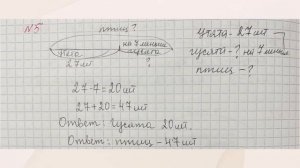 N5
птиц?
Утята - 27 шт
на 7 меньше
гусята - ? на 7 меньше
27 шт
?
птиц - ?
27-7=20 шт
27+20=47 шт
Ответ: Гусята 20 шт.
Ответ: птиц - 47 шт